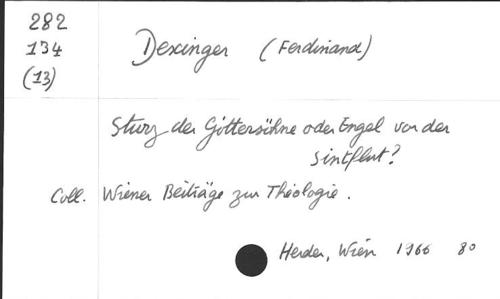 282
134
(13)
Dexinger (Ferdinand)
Sturz der Göttersöhne oder Engel vor der
Sintflut?
Coll. Wiener Beiträge zur Théologie.
Herder, Wien 1966 80